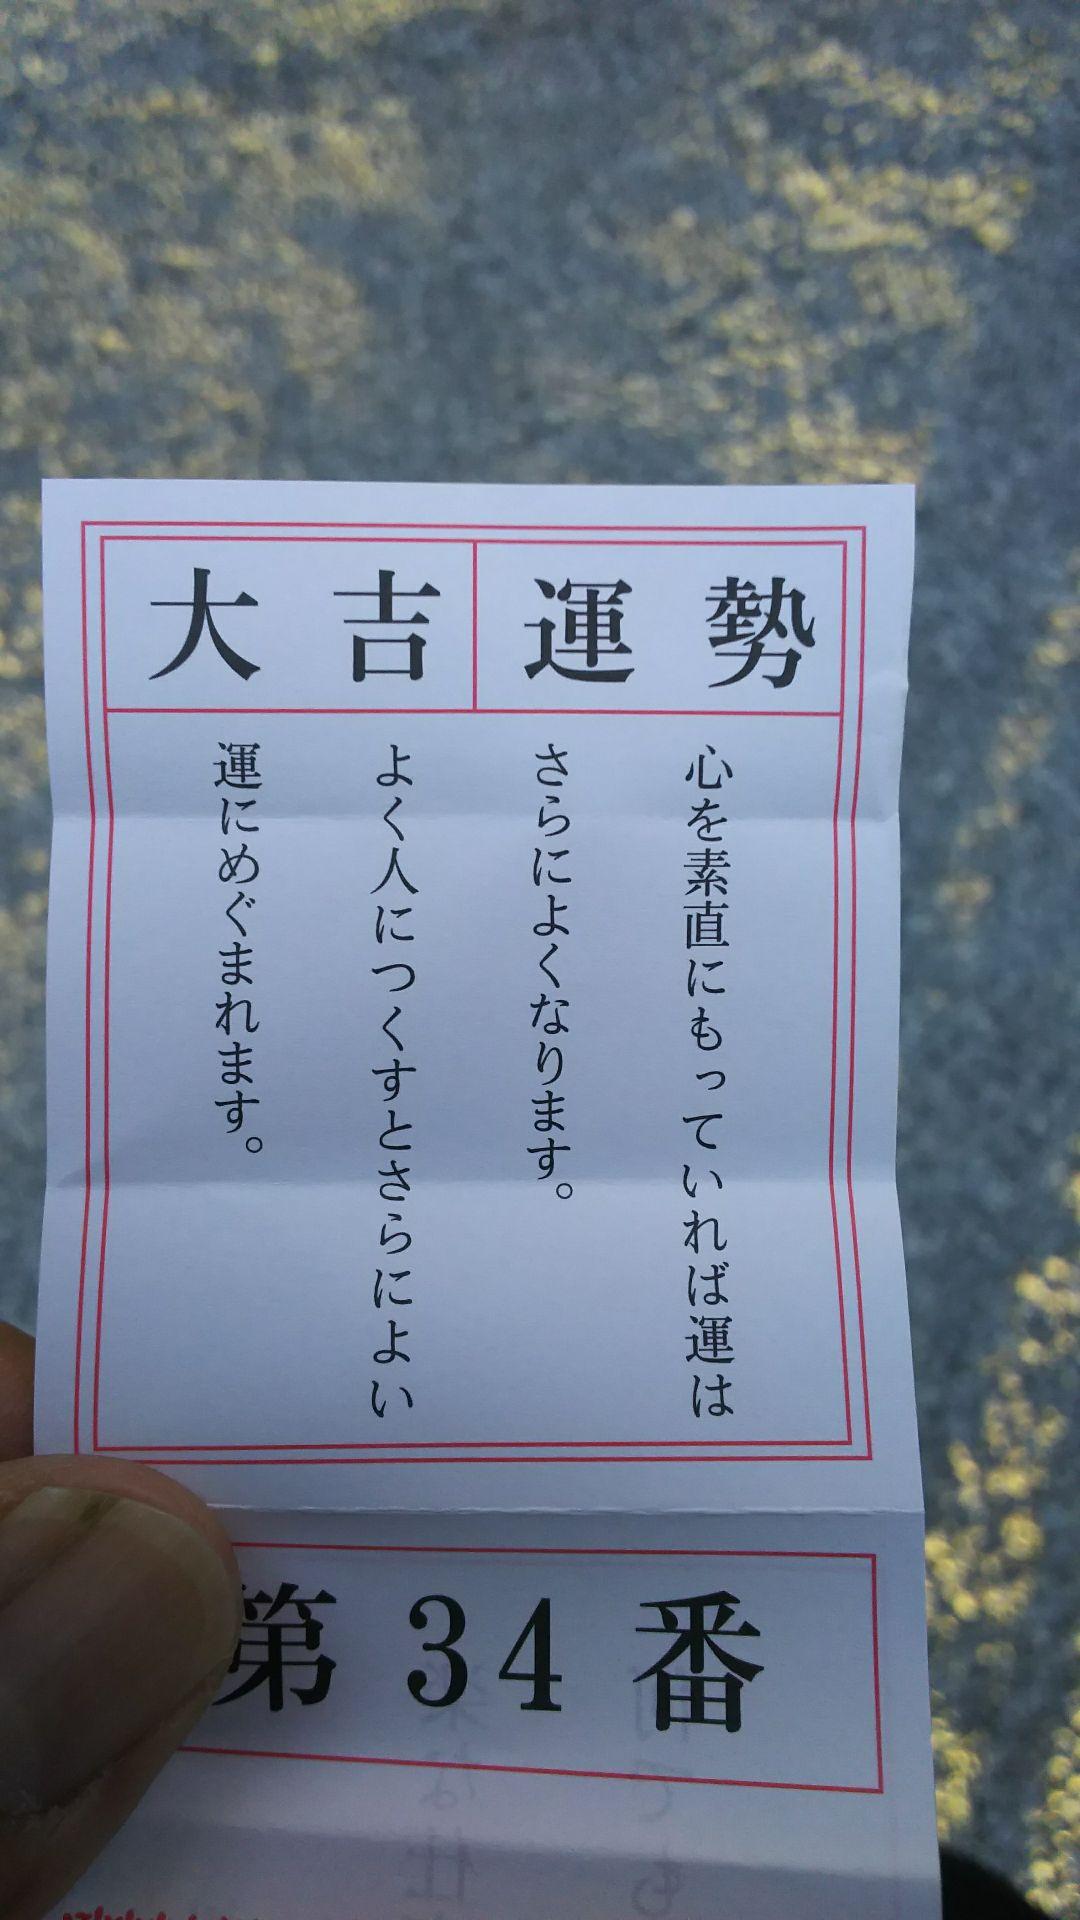 大吉運勢
心を素直にもっていれば運は
さらによくなります。
よく人につくすとさらによい
運にめぐまれます。
第34番